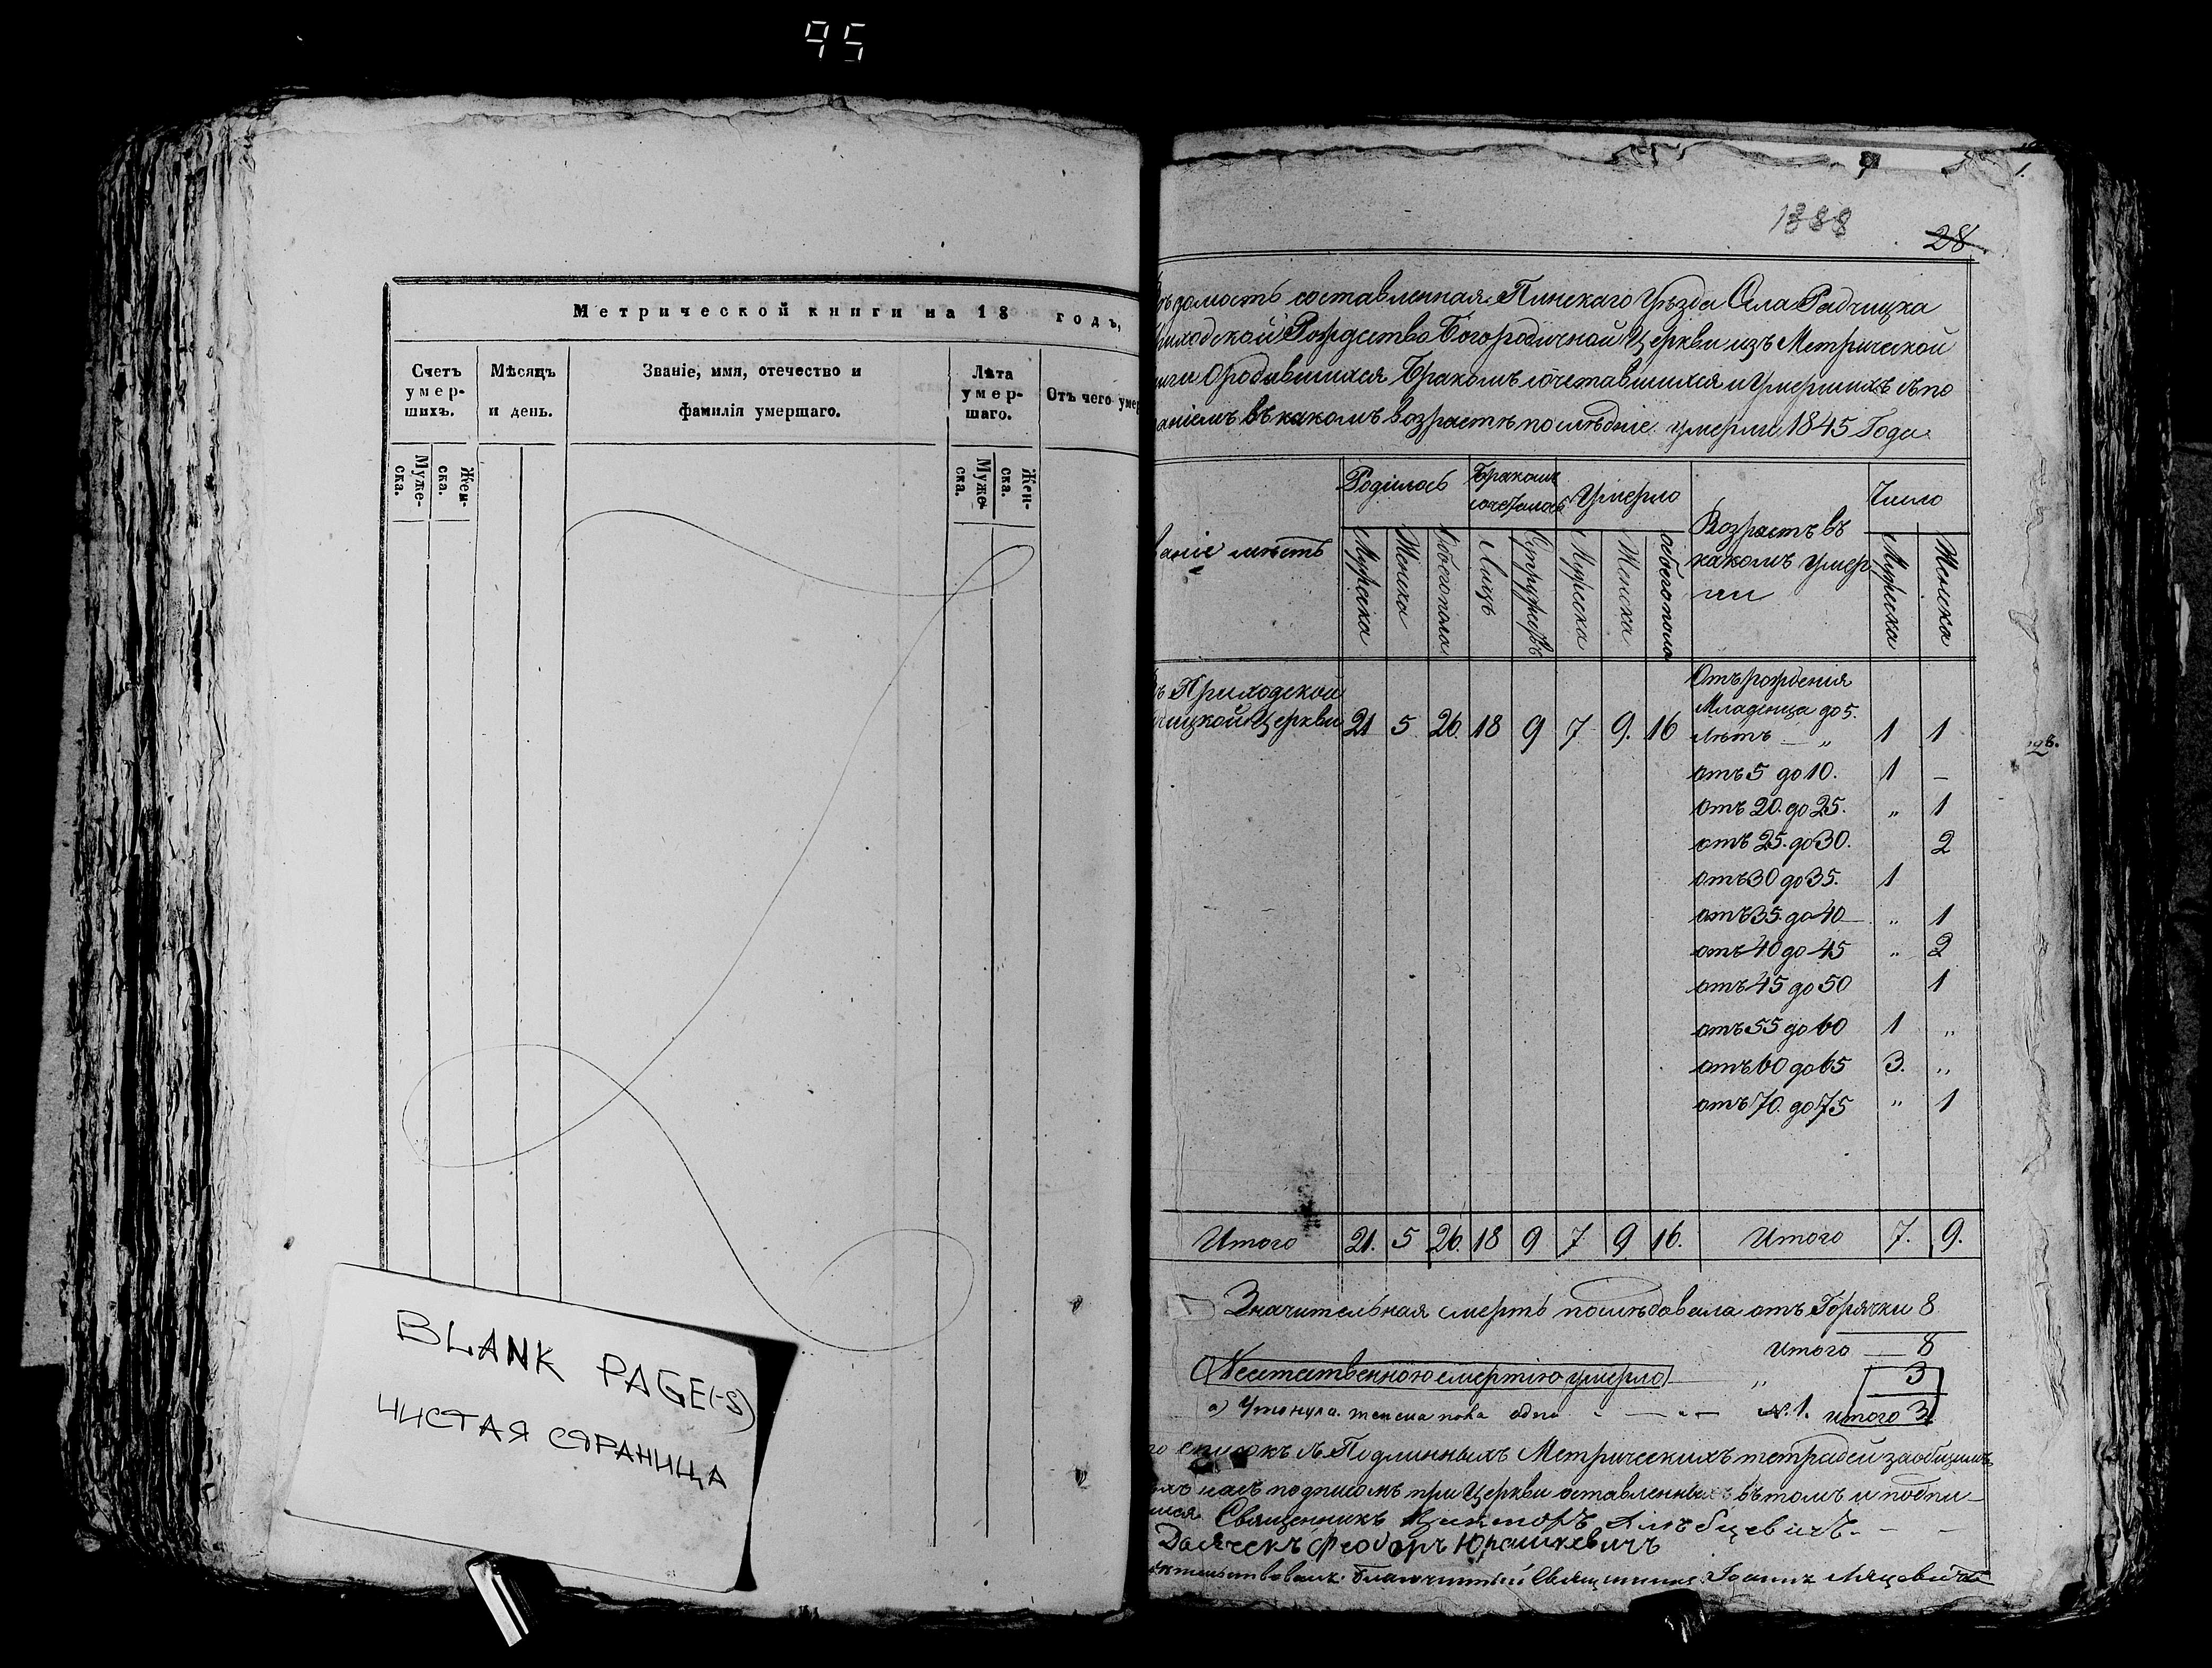 95
Метрической книги на 18 годъ,
Счетъ умер-шихъ.
Мѣсяцъ и день.
Званіе, имя, отечество и фамилія умершаго.
Лѣта умер-шаго.
Отъ чего умер
Муже-ска.
Жен-ска.
Муже-ска.
Жен-ска.
BLANK PAGE(-S)
ЧИСТАЯ СТРАНИЦА
1388
28
ѣдомость составленная Пинскаго Уѣзда Села Радчицка
риходской Рождество Богородичной Церкви изъ Метрической
ниги о родившихся Бракомъ сочетавшихся и Умершихъ съ по
аніемъ въ какомъ возрастѣ послѣдніе умерли 1845 Года
ваніе мѣстъ
Родилось
Бракомъ сочеталось
Умерло
Возрастъ въ какомъ умер
ли
Число
Мужеска
Женска
Обоего пола
Лицъ
Супружествъ
Мужеска
Женска
обоего пола
Мужеска
Женска
ъ Приходской
чицкой Церкви 21 5 26. 18 9 7 9. 16
Отъ рожденія
Младенца до 5.
Лѣтъ — „ 1 1
отъ 5 до 10. 1 —
отъ 20. до 25. „ 1
отъ 25. до 30. 2
отъ 30 до 35. 1
отъ 35. до 40 „ 1
отъ 40 до 45 „ 2
отъ 45 до 50 1
отъ 55 до 60 1 „
отъ 60 до 65 3. „
отъ 70. до 75 „ 1
Итого 21. 5 26. 18 9 7 9 16. Итого 7. 9.
Значительная смерть послѣдовала отъ Горячки 8
Итого — 8
Неестественною смертію умерло „ 3
а) Утонула женска пола одна №. 1. итого 3
списокъ съ Подлинныхъ Метрическихъ тетрадей за общимъ
насъ подписомъ при Церкви оставленныхъ въ томъ и подпи-
Священникъ Викторъ
Дьячекъ Феодоръ Юрашкевичъ
Благочинный Священникъ Іоаннъ Ляцевичъ